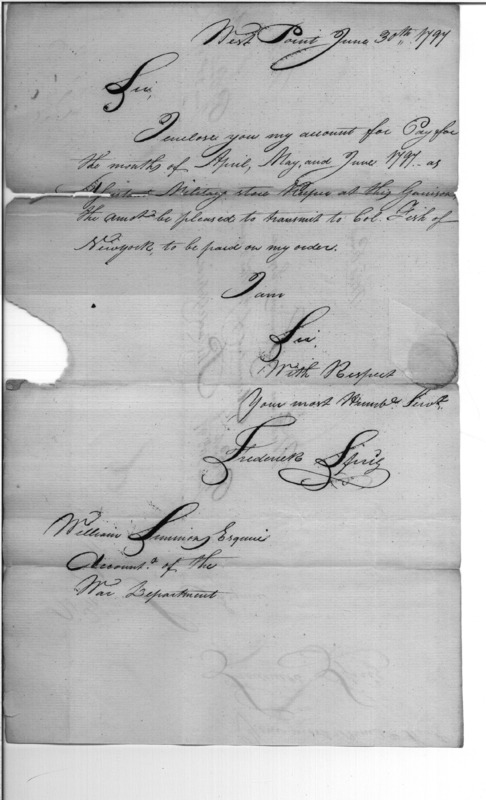 West Point June 30th 1797
Sir,
I enclose you my account for Pay for
the months of April, May, and June 1797 as
Military Store Keeper at this Garrison
the amot. be pleased to transmit to Col. Fish of
Newyork, to be paid on my order.
I am
Sir,
With Respect
Your most Humbe. Servt.
Frederick
William Simmons Esquire
Accountt. of the
War Department